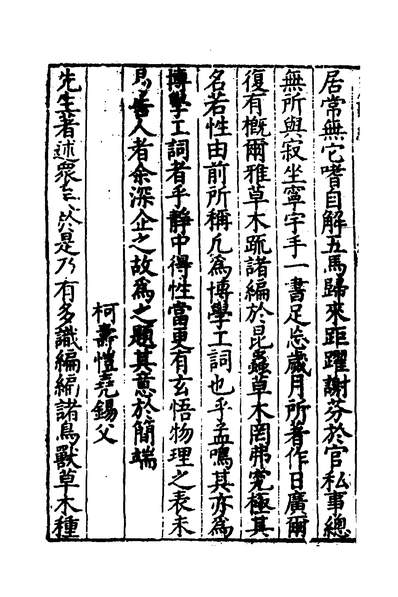 居常無它嗜自解五馬歸來距躍謝芬於官私事總
無所與寂坐寧宇手一書足忘歲月所著作日廣爾
復有概爾雅草木疏諸編於昆蟲草木罔弗究極其
名若性由前所稱凡為博學工詞也乎孟鳴其亦為
博學工詞者乎靜中得性當更有玄悟物理之表未
易善人者余深企之故為之題其意於簡端
柯壽愷堯錫父
先生著述眾矣於是乃有多識編編諸鳥獸草木種